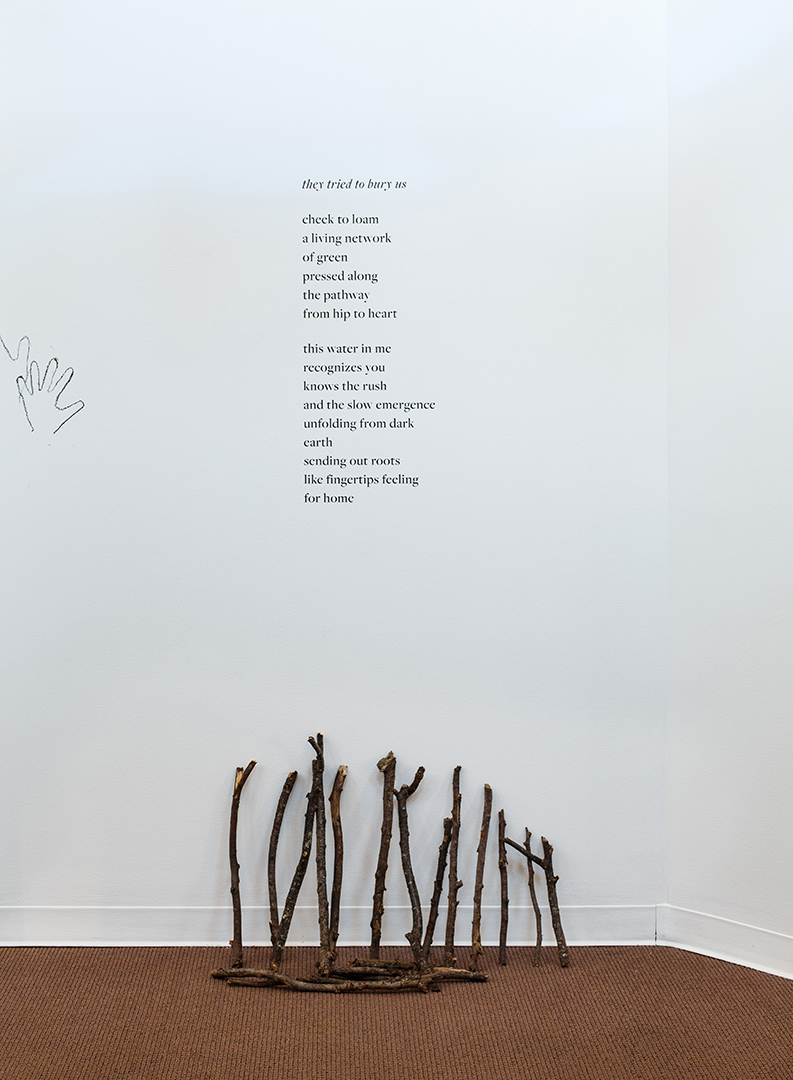 they tried to bury us
cheek to loam
a living network
of green
pressed along
the pathway
from hip to heart
this water in me
recognizes you
knows the rush
and the slow emergence
unfolding from dark
earth
sending out roots
like fingertips feeling
for home